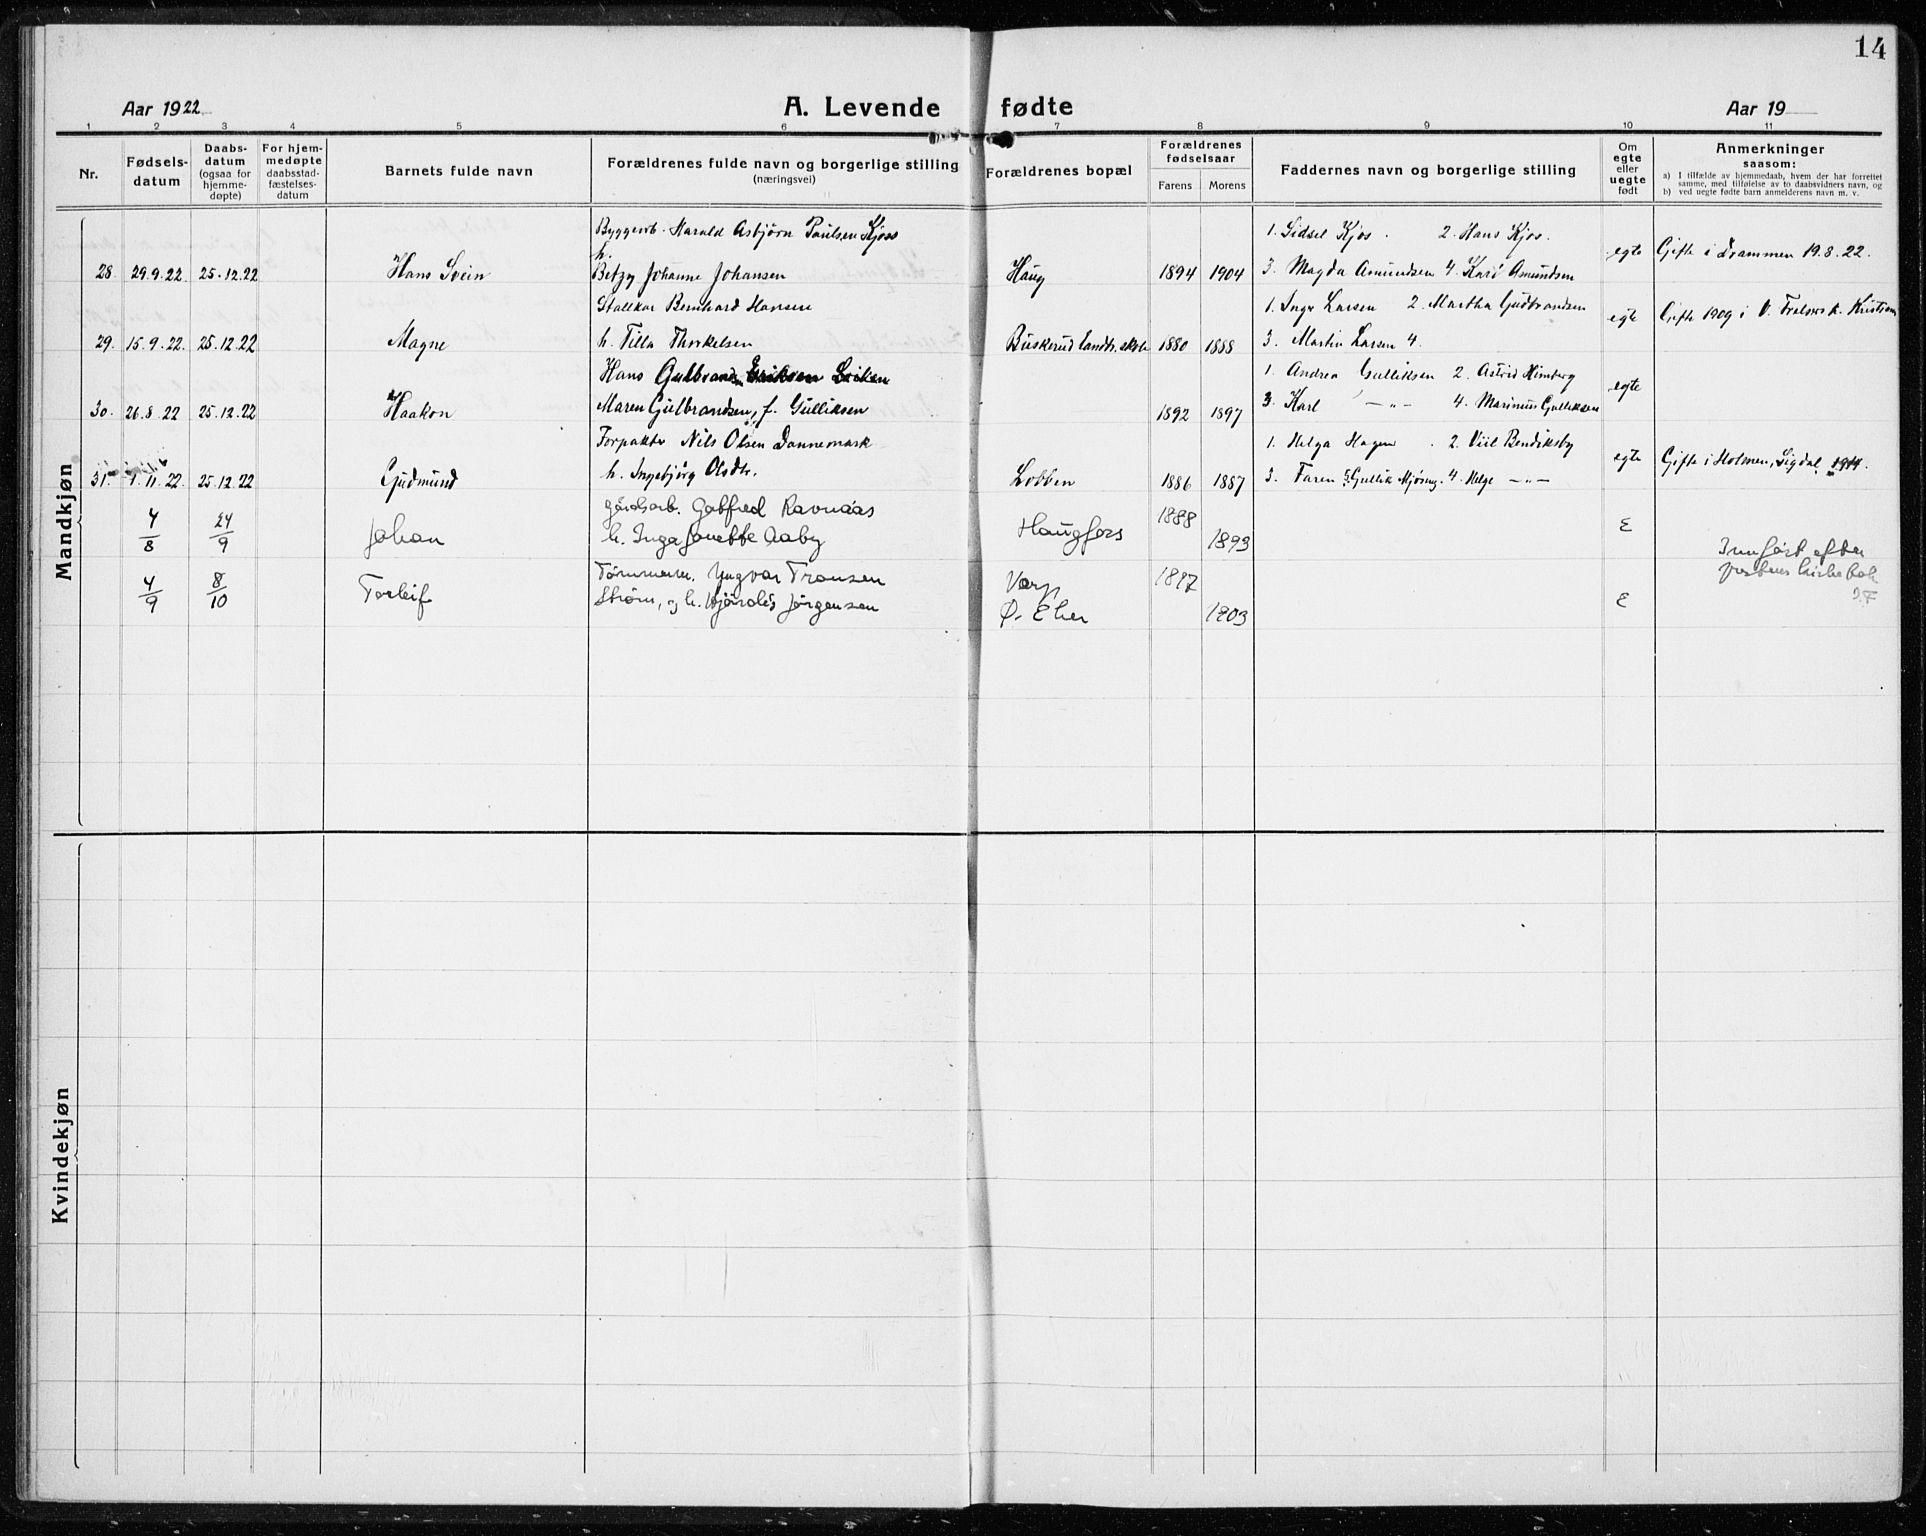 14
Aar 1922
A. Levende fødte
Aar 19
1 2 3 4 5 6 7 8 9 10 11
Nr.
Fødsels-
datum
Daabs-
datum
(ogsaa for
hjemme-
døpte)
For hjem-
medøpte
daabsstad-
fæstelses-
datum
Barnets fulde navn
Forældrenes fulde navn og borgerlige stilling
(næringsvei)
Forældrenes bopæl
Forældrenes
fødselsaar
Farens Morens
Faddernes navn og borgerlige stilling
Om
egte
eller
uegte
født
Anmerkninger
saasom:
a) I tilfælde av hjemmedaab, hvem der har forrettet
samme, med tilføielse av to daabsvidners navn, og
b) ved uegte fødte barn anmelderens navn m. v.
Mandkjøn
Byggearb. Harald Asbjørn Paulsen Kjøs 1. Sidsel Kjøs. 2. Hans Kjøs.
28. 29.9.22. 25.12.22 Hans Svein h. Betzy Johanne Johansen Haug 1894 1904 3. Magda Amundsen 4. Kari Amundsen egte Gifte i Drammen 19.8.22.
Stallkar Bernhard Hansen 1. Inga Larsen 2. Martha Gudbrandsen
29. 15.9.22. 25.12.22 Magne h. Tilla Thorkelsen Buskerud landbr. skole 1880 1888 3. Martin Larsen 4. egte Gifte 1909 i V. Frelsers k. Kristiania
Hans Gulbrandsen 1. Andrea Gulliksen 2. Astrid Himberg
30. 26.8.22 25.12.22 Haakon Maren Gulbrandsen, f. Gulliksen 1892 1897 3. Karl —"— 4. Marinus Gulliksen egte
Forpakter Nils Olsen Dannemark 1. Helga Hagen. 2. Viil Bendiksby
31. 1.11.22. 25.12.22 Gudmund h. Ingebjörg Olsdtr. Lobben 1886 1887 3. Faren 5. Gullik Mjøsing. 4. Helge —"— egte Gifte i Holmen, Sigdal, 1911.
4/8 24/9 Johan gårdsarb. Gotfred Ravnaas
h. Inga Janette Aaby Haugfors 1888 1893 E
4/9 8/10 Torleif Tømmerm. Yngvar Fransen
Strøm, og h. Hjördis Jørgensen Varp
Ø. Eker 1897 1903 E
Innført efter
prestens kirkebok
Kvindekjøn